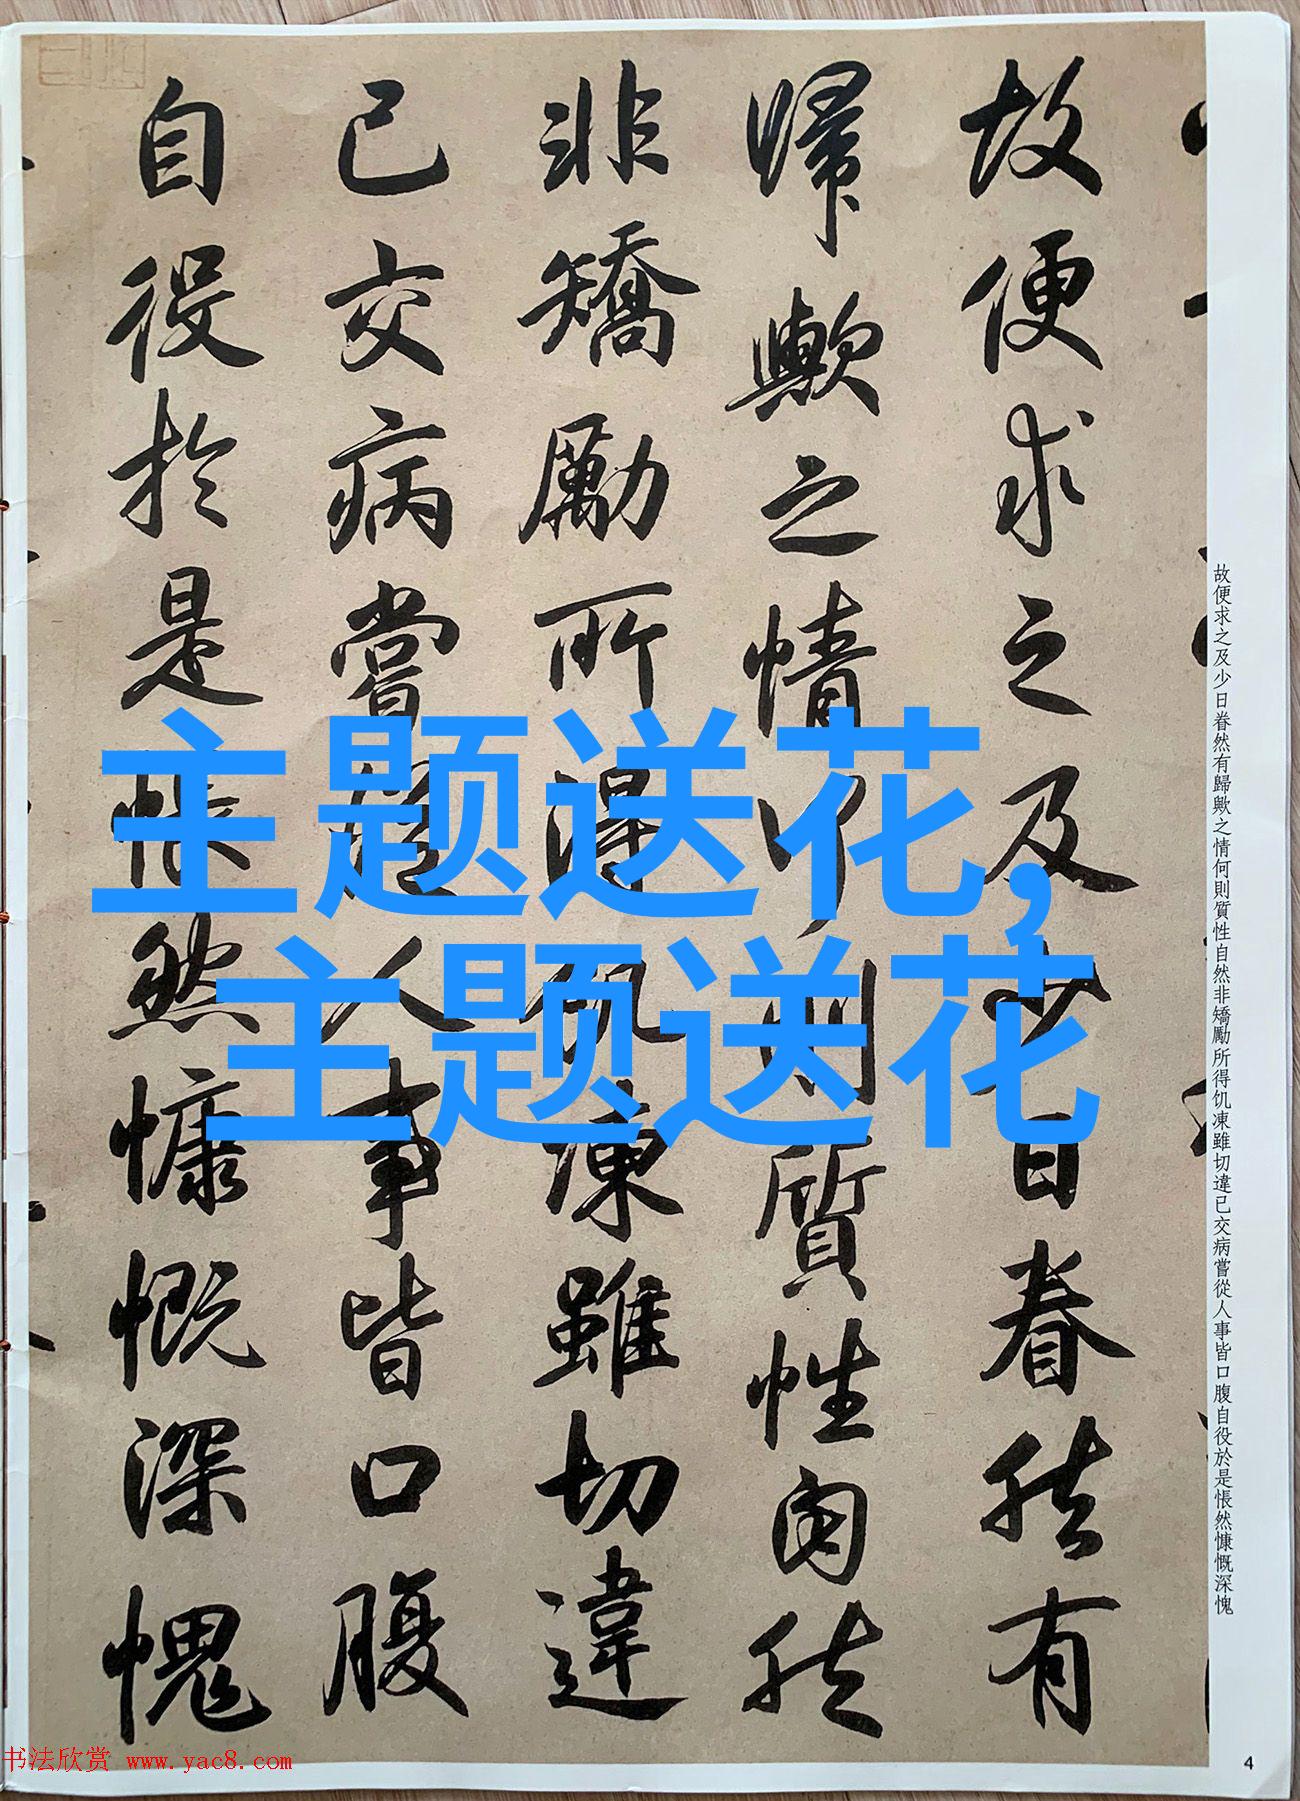 故便求之及少日眷然有
歸歟之情何則質性自然
非矯勵所得飢凍雖切違
已交病嘗從人事皆口腹
自役於是悵然慷慨深愧
主题送花,
主题送花
故便求之及少日眷然有歸歟之情何則質性自然非矯勵所得饥凍雖切違已交病嘗從人事皆口腹自役於是悵然慷慨深愧
书法欣赏 www.yac8.com
4